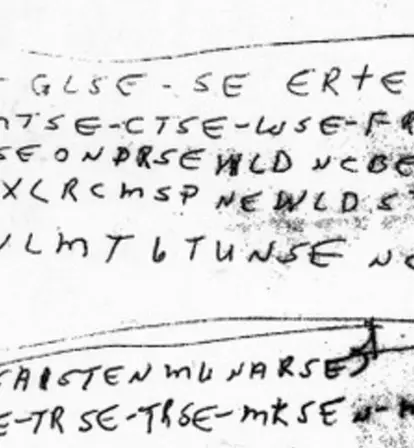 GLSE-SE ERTE
TSE-CTSE-WSE-FR
SE ONDRSE WLD NCBE
XLRCMSP NEWLDS
VLMT6TUNSE NC
TENMUNARSE)
E-TRSE-TRSE-MKSEN-M